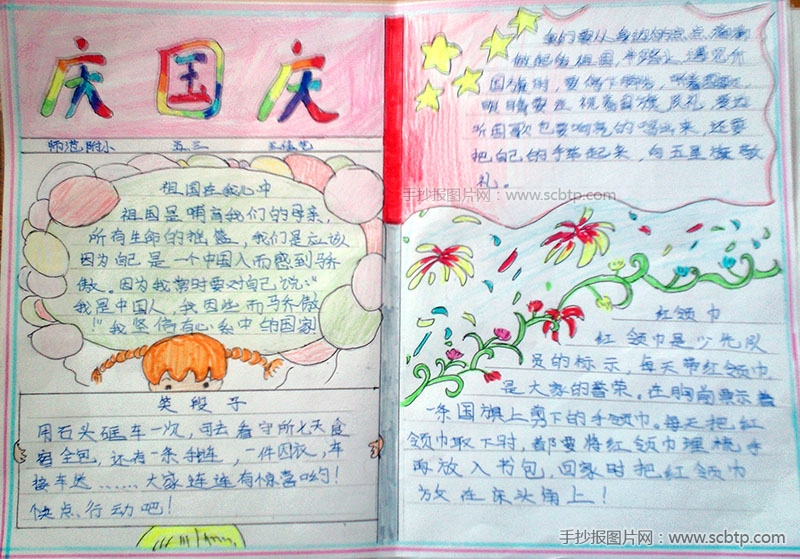 庆国庆
师范附小 五.三
祖国在我心中
祖国是哺育我们的母亲,
所有生命的摇篮,我们是应该
因为自己是一个中国人而感到骄
傲。因为我常时要对自己说:“
我是中国人,我因此而骄傲
!”我坚信有心系中的国家
笑段子
用石头砸车一次,可去看守所七天食
宿全包,还有一条手链,一件囚衣,车
接车送……大家连连有惊喜哟!
快点行动吧!
我们要从身边的点点滴滴
做起
国旗时,要停下脚步,
眼睛要正视着国旗敬礼。
听国歌也要响亮的唱出来,还要
把自己的手举起来,向五星旗敬
礼。
手抄报图片网:www.scbtp.com
红领巾
红领巾是少先队
员的标示,每天带红领巾
是大家的誉荣。在胸前飘示着
一条国旗上剪下的手领巾。每天把红
领巾取下时,都要将红领巾理梳手
再放入书包,回家时把红领巾
放在床头角上!
手抄报图片网:www.scbtp.com